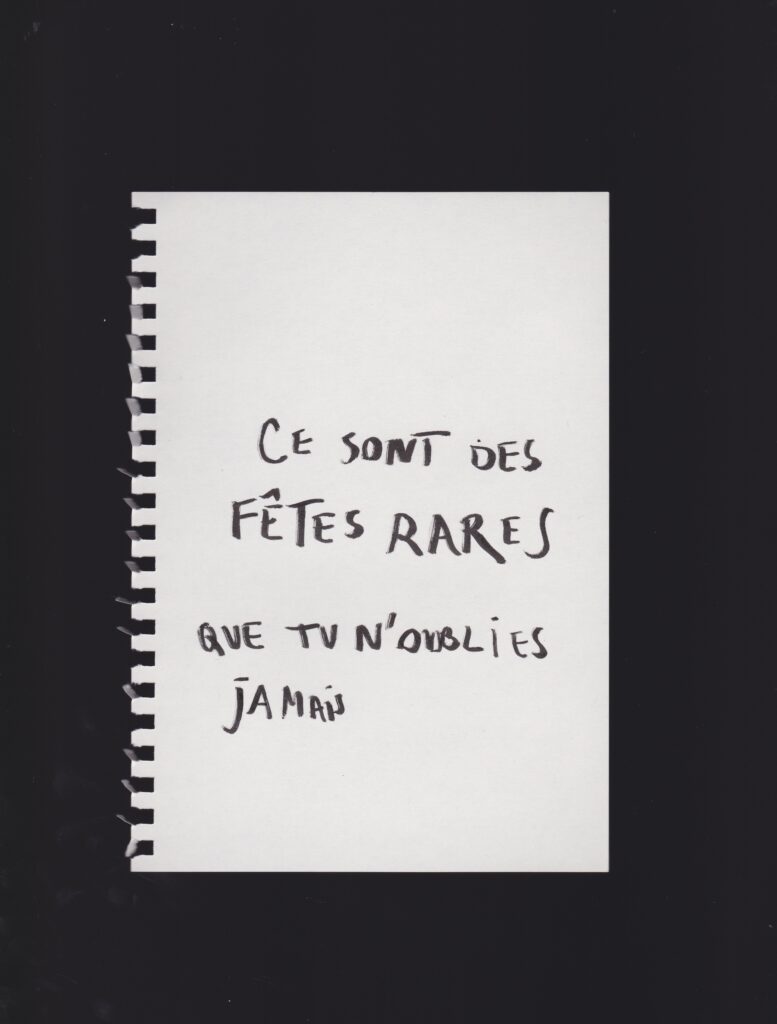 CE SONT DES
FÊTES RARES
QUE TU N'OUBLIES
JAMAIS